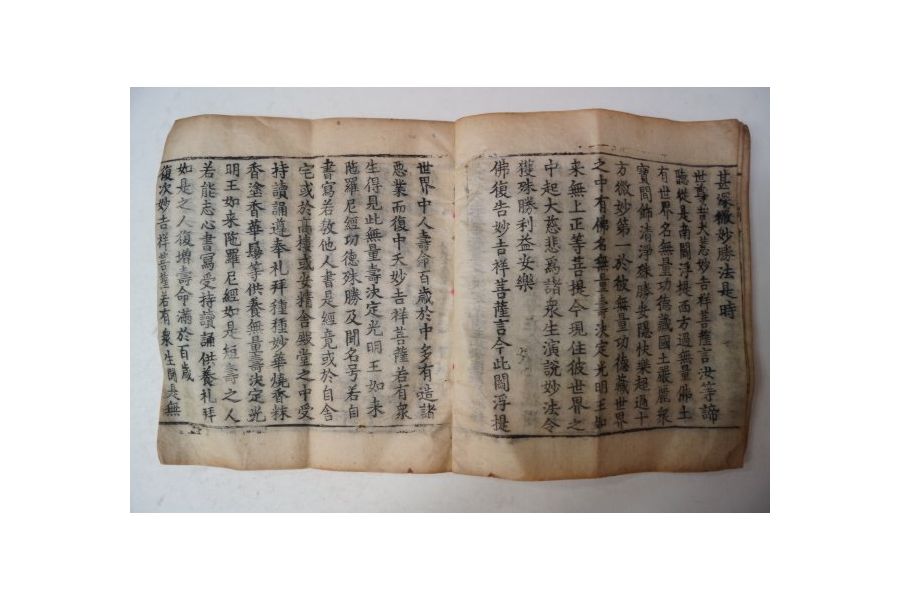 甚深微妙勝法是時
世尊告大慈妙吉祥菩薩言汝等諦
聽從是南閻浮提西方過無量佛土
有世界名無量功德藏國土嚴麗衆
寶間飾清淨殊勝安隱快樂超過十
方微妙第一於彼無量功德藏世界
之中有佛名無量壽決定光明王如
來無上正等菩提今現住彼世界之
中起大慈悲爲諸衆生演說妙法令
獲殊勝利益安樂
佛復告妙吉祥菩薩言今此閻浮提
世界中人壽命百歲於中多有造諸
惡業而復中夭妙吉祥菩薩若有衆
生得見此無量壽決定光明王如来
陁羅尼經功德殊勝及聞名号若自
書寫若教他人書是經竟或於自舍
宅或於高樓或安精舍殿堂之中受
持讀誦遵奉礼拜種種妙華燒香粖
香塗香華鬘等供養無量壽決定光
明王如来陁羅尼經如是短壽之人
若能志心書寫受持讀誦供養礼拜
如是之人復增壽命滿於百歲
復次妙吉祥菩薩若有衆生聞是無